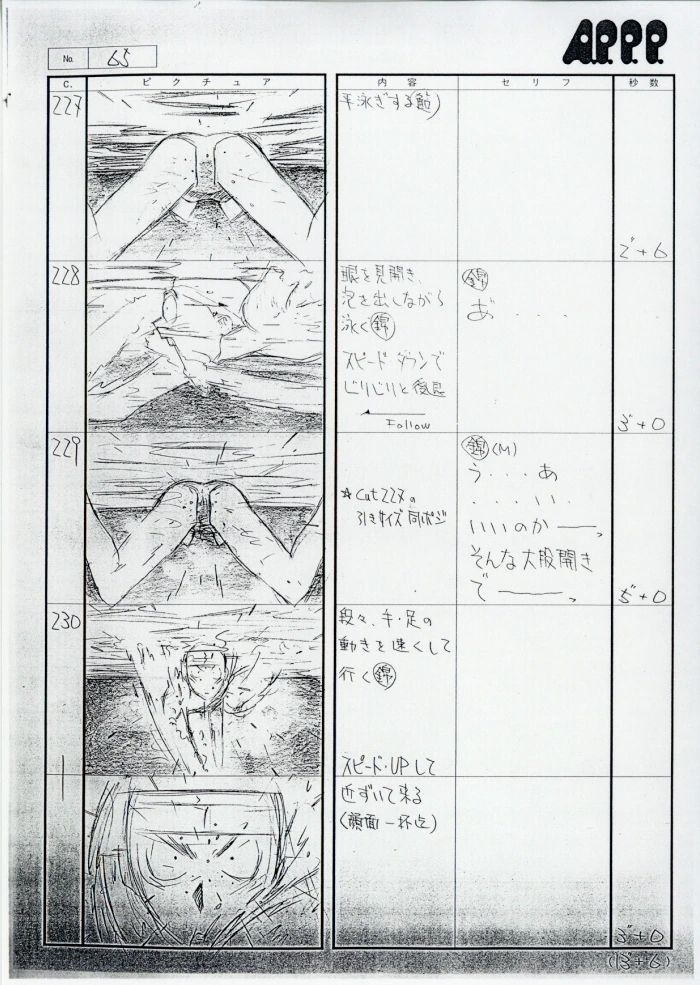 A.P.P.P.
No. 65
C. ピクチュア 内容 セリフ 秒数
227
平泳ぎする
2"+6
228
眼を見開き、
泡を出しながら
泳ぐ 錦
スピード・ダウンで
じりじりと後退
Follow
錦
お゛・・・・
3"+0
229
☆Cut227の
引きサイズ 同ポジ
錦(M)
う・・・あ
・・・・い・
いいのかー、
そんな大股開き
でー、
5"+0
230
段々、手・足の
動きを速くして
行く 錦
スピード・UPして
近ずいて来る
(顔面一杯迄)
3"+0
(13"+6)